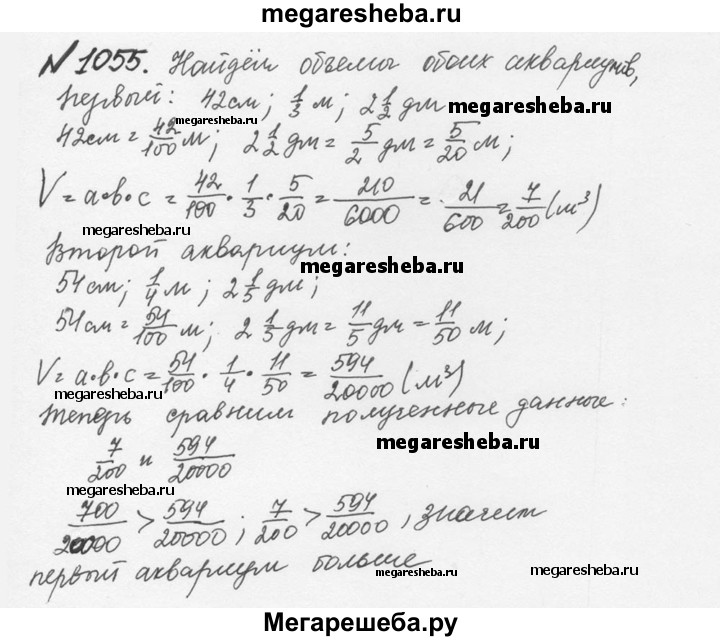 megaresheba.ru
№ 1055. Найдём объемы обоих аквариумов,
первый: 42см; 1/3 м; 2 1/2 дм megaresheba.ru
megaresheba.ru
42см = 42/100 м; 2 1/2 дм = 5/2 дм = 5/20 м;
V = a•b•c = 42/100 • 1/3 • 5/20 = 210/6000 = 21/600 = 7/200 (м³)
megaresheba.ru
Второй аквариум:
megaresheba.ru
54см; 1/4 м; 2 1/5 дм;
54см = 54/100 м; 2 1/5 дм = 11/5 дм = 11/50 м;
V = a•b•c = 54/100 • 1/4 • 11/50 = 594/20000 (м³)
megaresheba.ru
Теперь сравним полученные данные:
7/200 и 594/20000 megaresheba.ru
megaresheba.ru
700/20000 > 594/20000; 7/200 > 594/20000, значит
первый аквариум больше
megaresheba.ru megaresheba.ru
Мегарешеба.ру